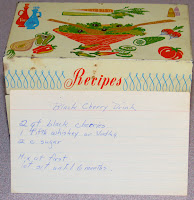 Recipes
Black Cherry Drink
2 qt black cherries
1 fifth whiskey or Vodka
2 c sugar
Mix at first
let set until 6 months.